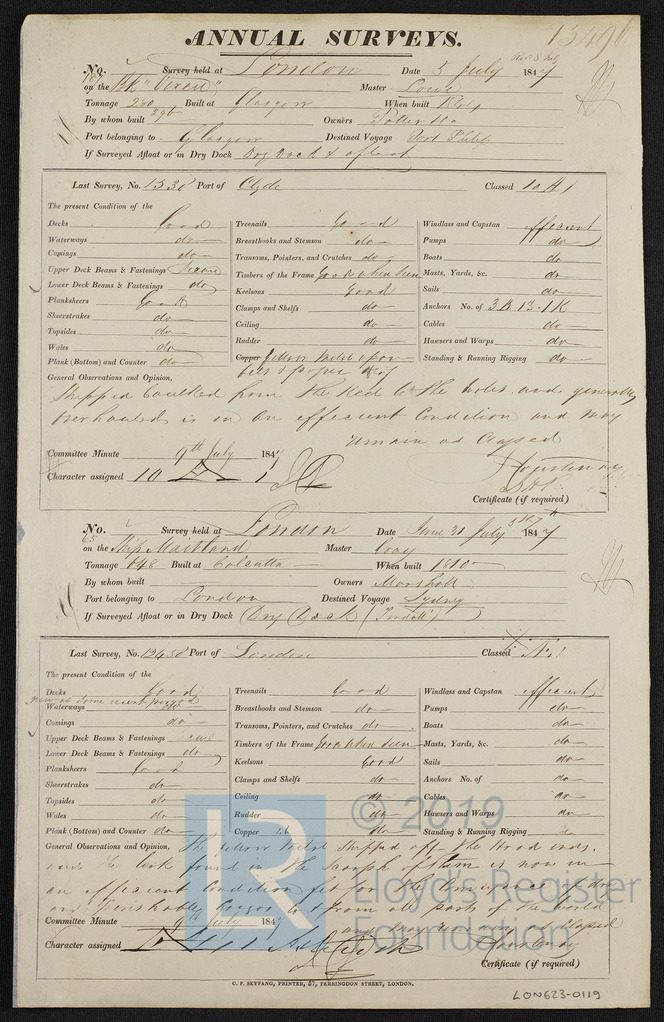 ANNUAL SURVEYS.
No. Survey held at London Date 5 July 1847
on the Bk "Vixen" Master Lowe
Tonnage 280 Built at Glasgow When built
By whom built Owners Potter & Co
Port belonging to Glasgow Destined Voyage Port Philip
If Surveyed Afloat or in Dry Dock Dry Dock & afloat
Last Survey, No. 1538 Port of Clyde Classed 10 A 1
The present Condition of the
Decks Good
Waterways do
Comings do
Upper Deck Beams & Fastenings
Lower Deck Beams & Fastenings do
Planksheers Good
Sheerstrakes do
Topsides do
Wales do
Plank (Bottom) and Counter do
Treenails Good
Breasthooks and Stemson do
Transoms, Pointers, and Crutches do
Timbers of the Frame Good when seen
Keelsons Good
Clamps and Shelfs do
Ceiling do
Rudder do
Copper Yellow Metal upon
felt & paper
Windlass and Capstan efficient
Pumps do
Boats do
Masts, Yards, &c. do
Sails do
Anchors No. of 3 B. 1 S. 1 K
Cables do
Hawsers and Warps do
Standing & Running Rigging do
General Observations and Opinion,
Stripped Caulked from the Keel to the and generally
overhauled is in an efficient Condition and may
remain as Classed
Committee Minute 9th July 1847
Character assigned 10 A 1
Certificate (if required)
No. Survey held at London Date June 30 July 3rd 7th 1847
65
on the Ship Maitland Master Gray
Tonnage 648 Built at Calcutta When built 1810
By whom built Owners Marshall
Port belonging to London Destined Voyage Sydney
If Surveyed Afloat or in Dry Dock Dry Dock
Last Survey, No. Port of London Classed
The present Condition of the
Decks Good
Waterways do
Comings do
Upper Deck Beams & Fastenings
Lower Deck Beams & Fastenings do
Planksheers Good
Sheerstrakes do
Topsides do
Wales do
Plank (Bottom) and Counter do
Treenails Good
Breasthooks and Stemson do
Transoms, Pointers, and Crutches do
Timbers of the Frame Good when seen
Keelsons Good
Clamps and Shelfs do
Ceiling do
Rudder do
Copper do
Windlass and Capstan efficient
Pumps do
Boats do
Masts, Yards, &c. do
Sails do
Anchors No. of do
Cables do
Hawsers and Warps do
Standing & Running Rigging
General Observations and Opinion, The Yellow Metal Stripped off the Wood ends.
and the leak found in the scarph of them is now in
an efficient Condition fit for the Conveyance of dry
and Perishable Cargos to & from all parts of the World
and may remain as Classed
Committee Minute 9 July 1847
Character assigned
Certificate (if required)
C. F. SEYFANG, PRINTER, 57, FARRINGDON STREET, LONDON.
LON623-0119
© 2019
Lloyd's Register
Foundation